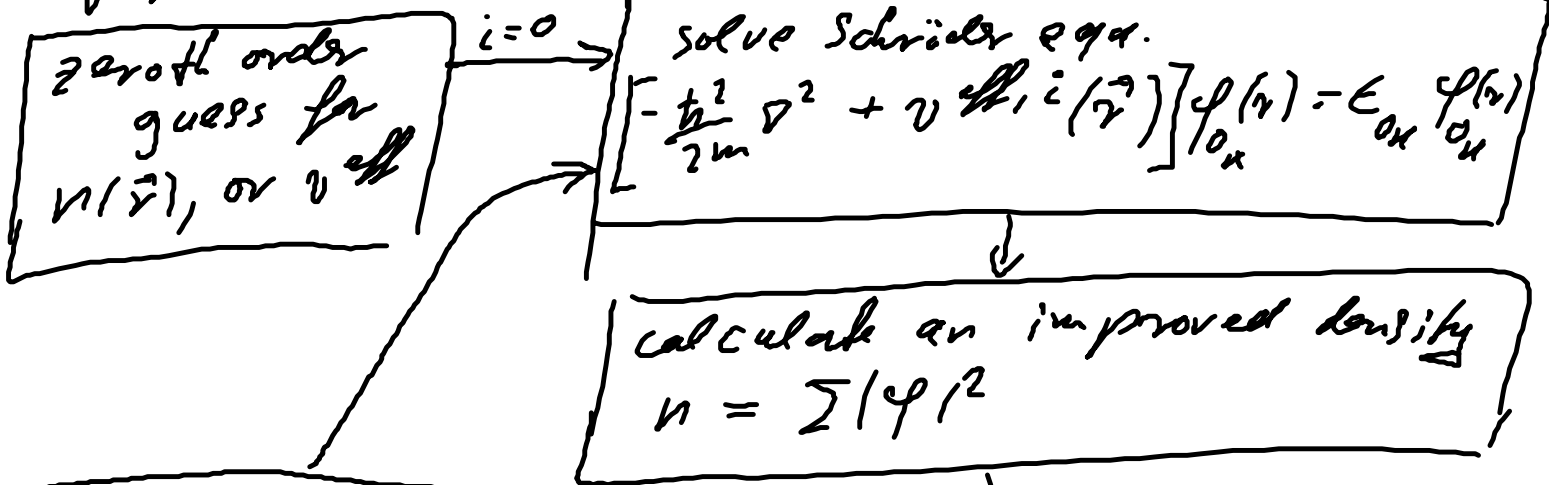 zeroth order
guess for
n(r⃗), or v^eff
i=0
solve Schröder eqn.
[-ħ²/2m ∇² + v^{eff, i}(r⃗)] φ_{o_κ}(r) = ϵ_{o_κ} φ_{o_κ}(r)
calculate an improved density
n = Σ|φ|²